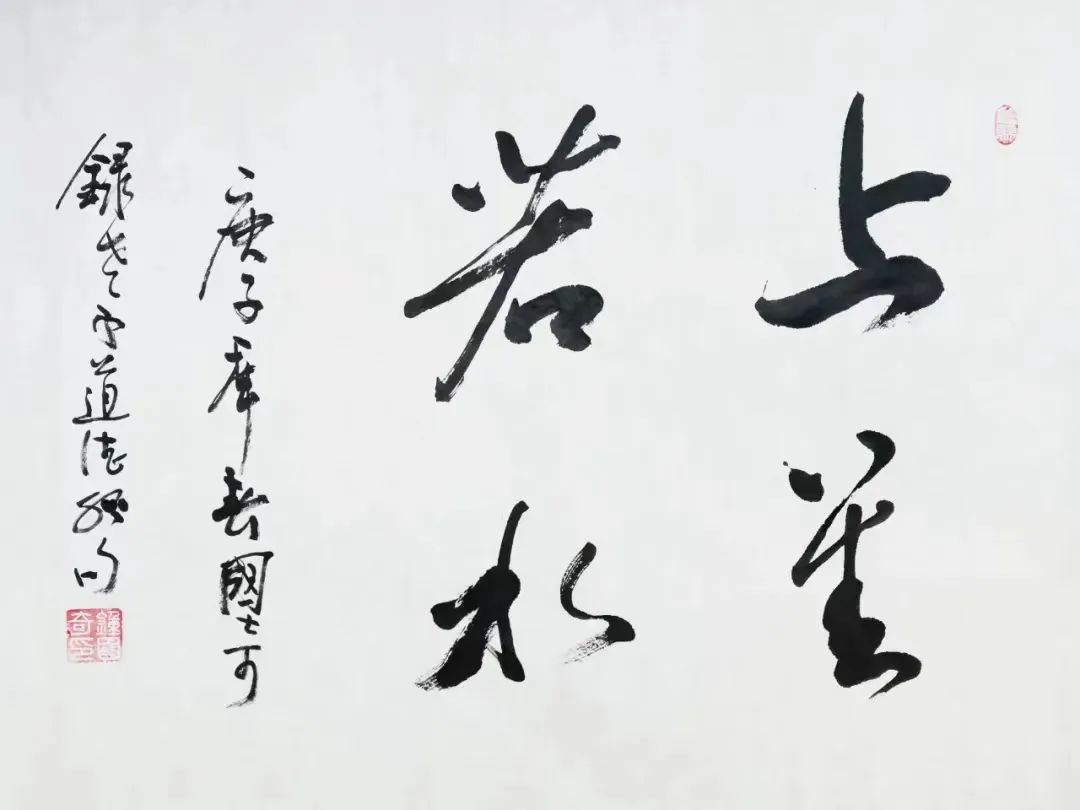 上善
若水
庚子年春國奇
錄老子道德經句
鍾國
奇印